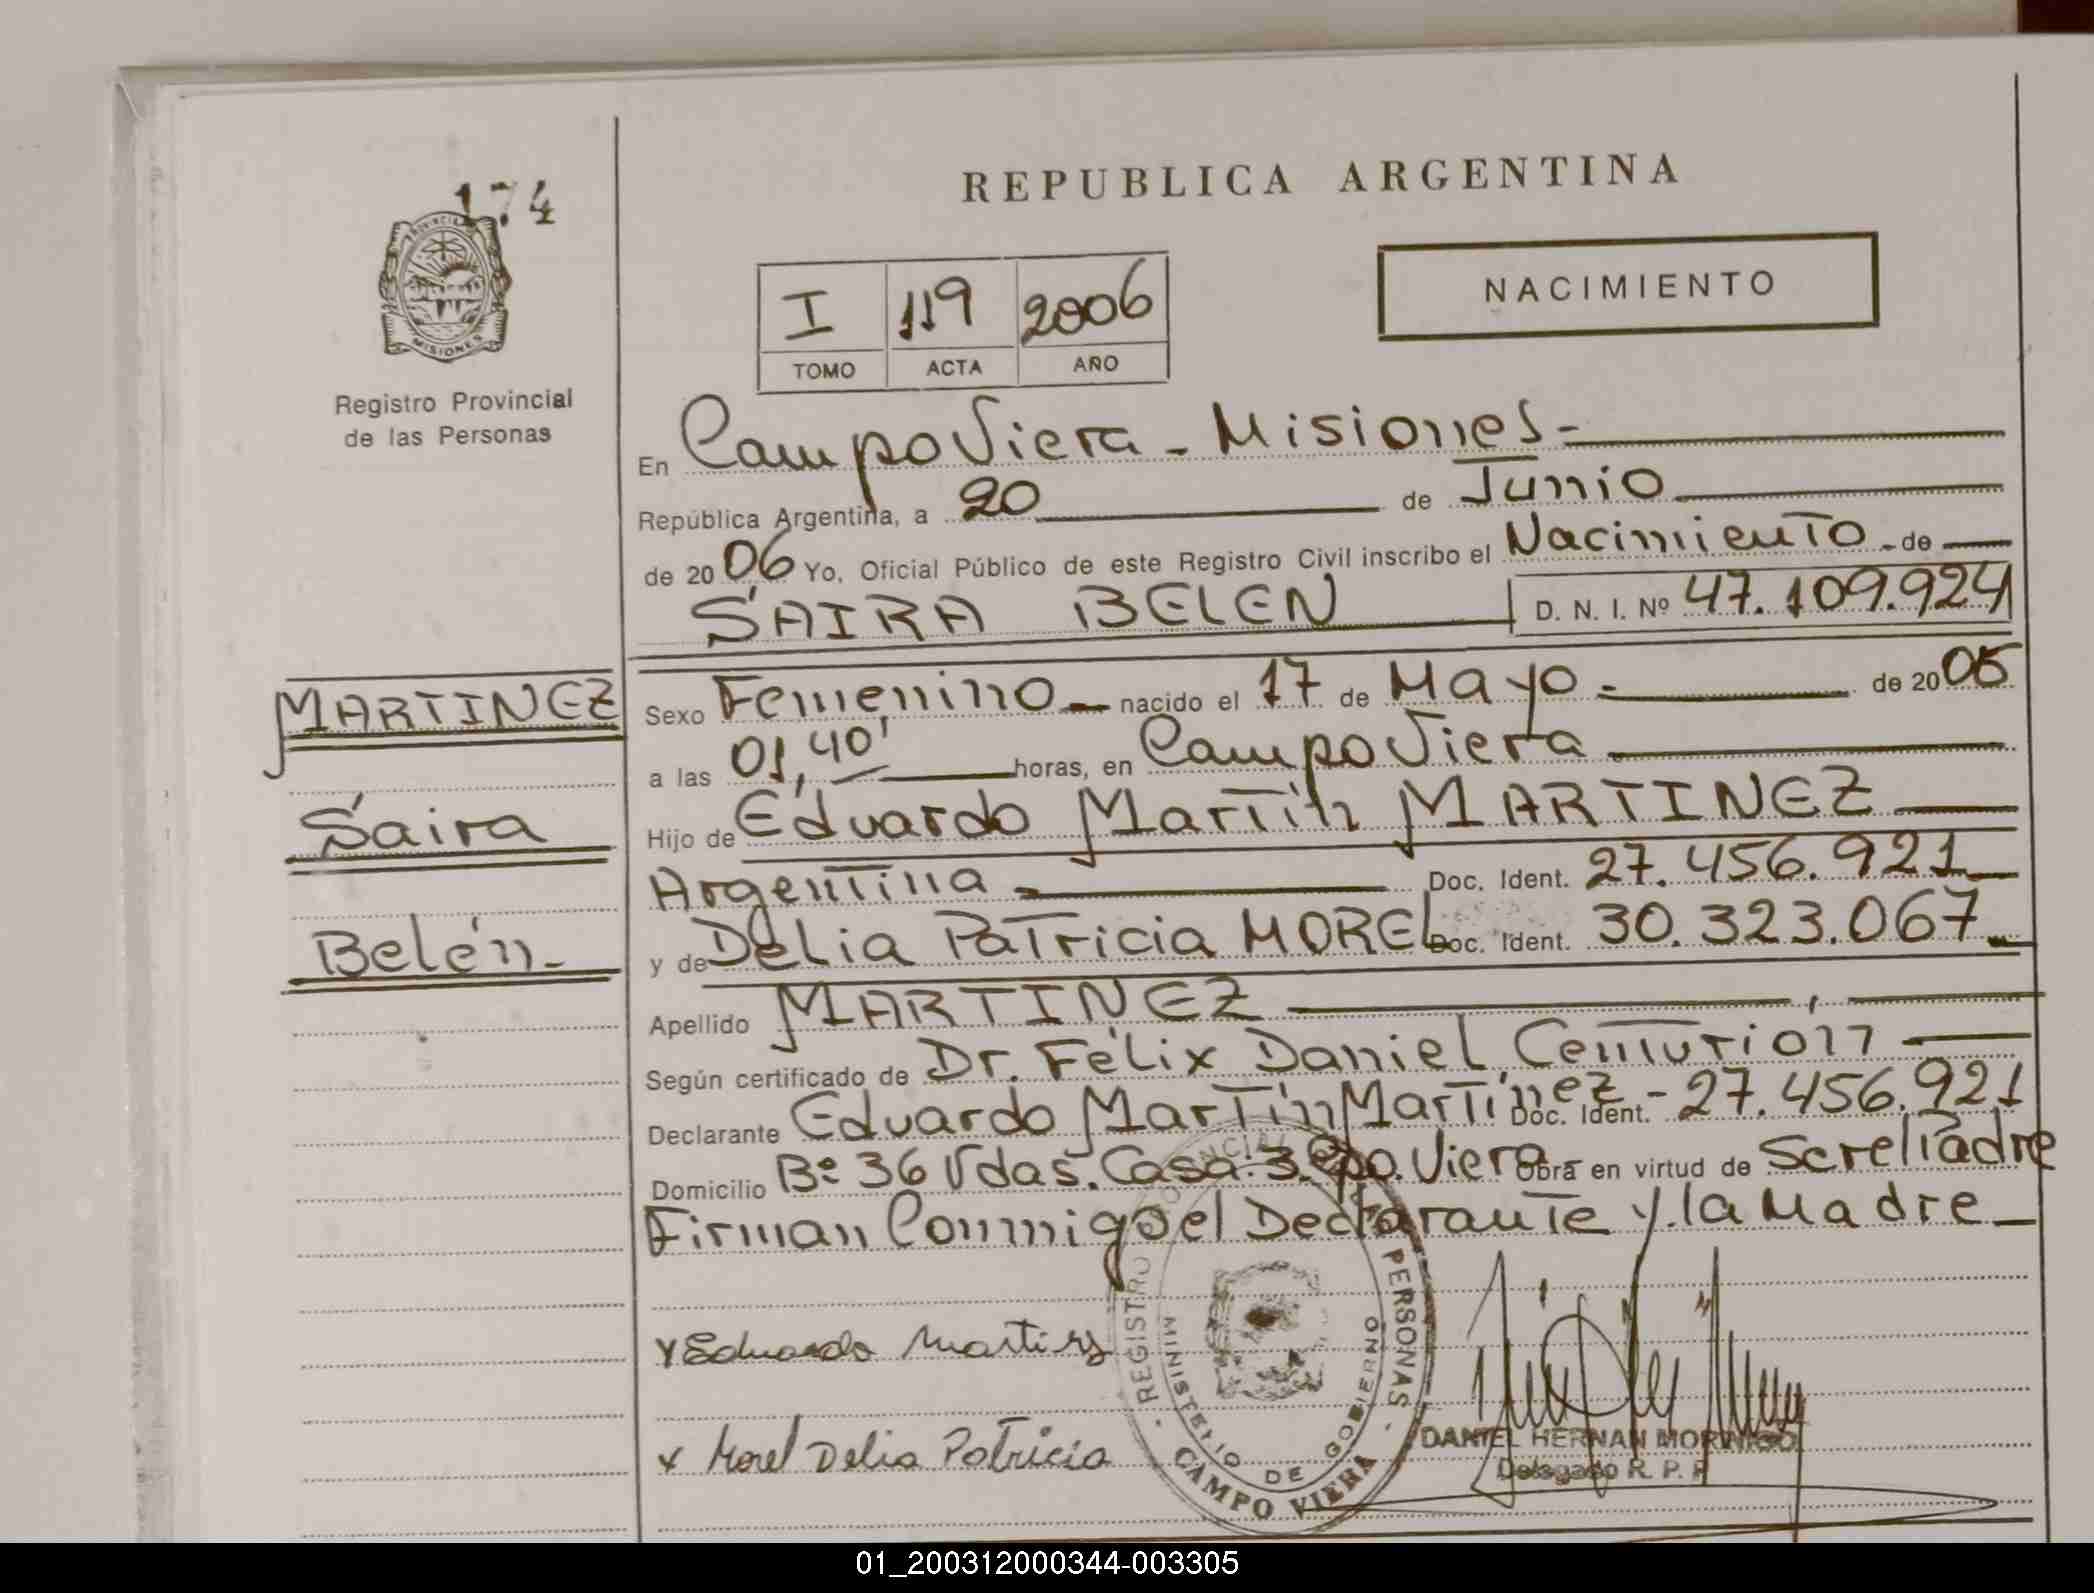 174
REPUBLICA ARGENTINA
NACIMIENTO
I 119 2006
TOMO ACTA AÑO
PROVINCIA
MISIONES
Registro Provincial
de las Personas
En Campo Viera - Misiones -
República Argentina, a 20 de Junio
de 2006 Yo, Oficial Público de este Registro Civil inscribo el Nacimiento - de
SAIRA BELEN D. N. I. Nº 47.109.924
MARTINEZ
Saira
Belén -
Sexo Femenino - nacido el 17 de Mayo - de 2006
a las 01,40' horas, en Campo Viera
Hijo de Eduardo Martín MARTINEZ
Argentina - Doc. Ident. 27.456.921
y de Delia Patricia MOREL Doc. Ident. 30.323.067
Apellido MARTINEZ
Según certificado de Dr. Félix Daniel Centurión
Declarante Eduardo Martín Martínez Doc. Ident. - 27.456.921
Domicilio Bº 36 Vdas. Casa. 3. Cpo. Viera Obra en virtud de Ser el Padre
Firman Conmigo el Declarante y la Madre
Eduardo Martinez
x Morel Delia Patricia
REGISTRO PROVINCIAL PERSONAS
MINISTERIO DE GOBIERNO
CAMPO VIERA
DANIEL HERNAN MORINIGO
Delegado R. P. P
01_200312000344-003305